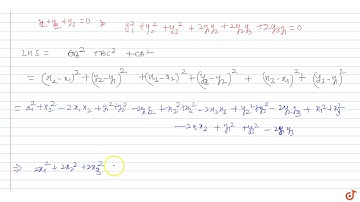 y₁+y₂+y₃=0 ⇒ y₁²+y₂²+y₃²+2y₁y₂+2y₂y₃+2y₃y₁=0
LHS = BC²+CA²
= (x₂-x₁)²+(y₂-y₁)²+(x₃-x₂)²+(y₃-y₂)²+(x₃-x₁)²+(y₃-y₁)²
= x₁²+x₂²-2x₁x₂+y₁²+y₂²-2y₁y₂+x₂²+x₃²-2x₂x₃+y₂²+y₃²-2y₂y₃+x₁²+x₃²
+y₁²+y₃²-2y₁y₃
⇒ 2x₁²+2x₂²+2x₃²
doubtnut